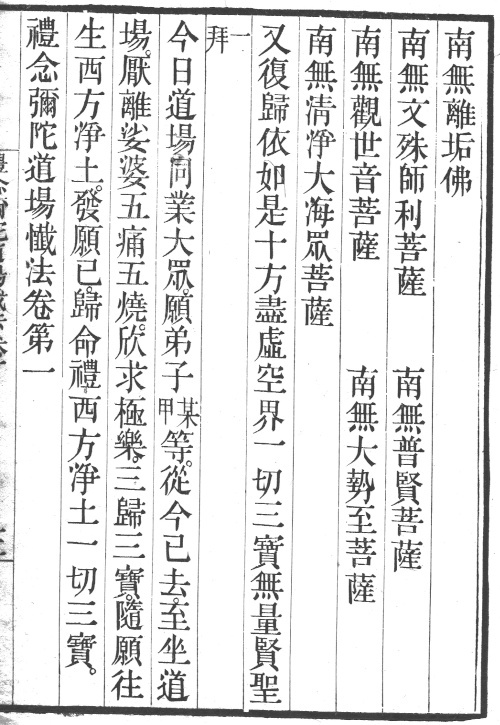 南無離垢佛
南無文殊師利菩薩　南無普賢菩薩
南無觀世音菩薩　南無大勢至菩薩
南無清淨大海眾菩薩
又復歸依如是十方盡虛空界一切三寶無量賢聖
一拜
今日道場同業大眾。願弟子某甲等。從今已去。至坐道
場。厭離娑婆五痛五燒。欣求極樂。三歸三寶。隨願往
生西方淨土。發願已。歸命禮。西方淨土一切三寶。
禮念彌陀道場懺法卷第一